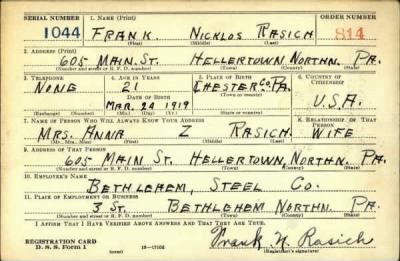 SERIAL NUMBER 1. NAME (Print) ORDER NUMBER
1044 FRANK. NICKLOS RASICH 814
(First) (Middle) (Last)
2. ADDRESS (Print)
605 MAIN. ST. HELLERTOWN NORTHN. PA.
(Number and street or R. F. D. number) (Town) (County) (State)
3. TELEPHONE 4. AGE IN YEARS 5. PLACE OF BIRTH 6. COUNTRY OF CITIZENSHIP
NONE 21 CHESTER CO. PA.
DATE OF BIRTH (Town or county)
MAR. 24 1919 U.S.A.
(Exchange) (Number) (Mo.) (Day) (Yr.) (State or country)
7. NAME OF PERSON WHO WILL ALWAYS KNOW YOUR ADDRESS 8. RELATIONSHIP OF THAT PERSON
MRS. ANNA Z RASICH WIFE
(Mr., Mrs., Miss) (First) (Middle) (Last)
9. ADDRESS OF THAT PERSON
605 MAIN ST. HELLERTOWN, NORTHN. PA.
(Number and street or R. F. D. number) (Town) (County) (State)
10. EMPLOYER'S NAME
BETHLEHEM, STEEL CO.
11. PLACE OF EMPLOYMENT OR BUSINESS
3 ST. BETHLEHEM NORTHN. PA.
(Number and street or R. F. D. number) (Town) (County) (State)
I AFFIRM THAT I HAVE VERIFIED ABOVE ANSWERS AND THAT THEY ARE TRUE.
REGISTRATION CARD
D. S. S. Form 1 (over) Frank N. Rasich
(Registrant's signature)